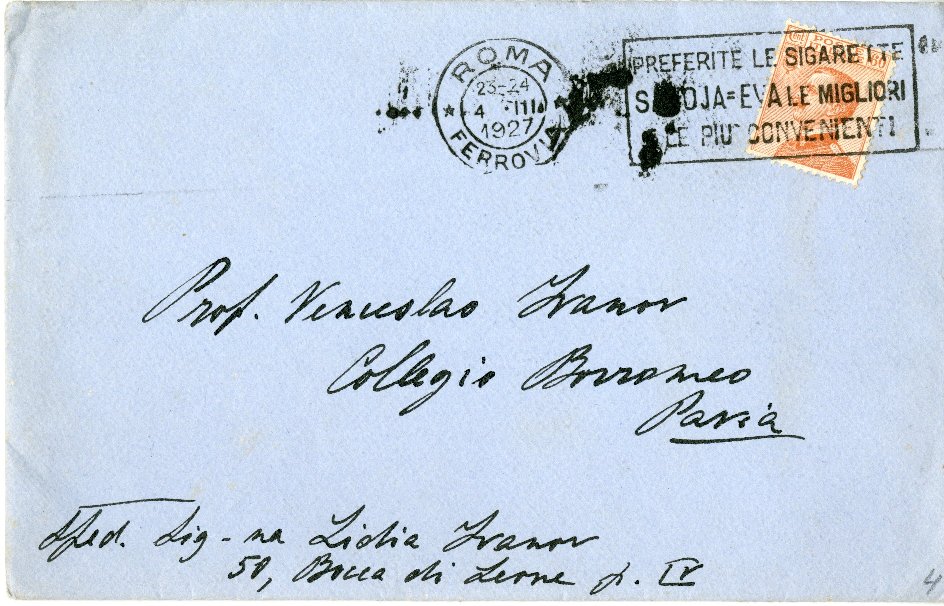 ROMA
23-24
4 III
1927
FERROVIA
PREFERITE LE SIGARETTE
SAVOJA=EVA LE MIGLIORI
E LE PIU' CONVENIENTI
Prof. Venceslao Ivanov
Collegio Borromeo
Pavia
Sped. Sig-na Lidia Ivanov
50, Bocca di Leone p. IV
4